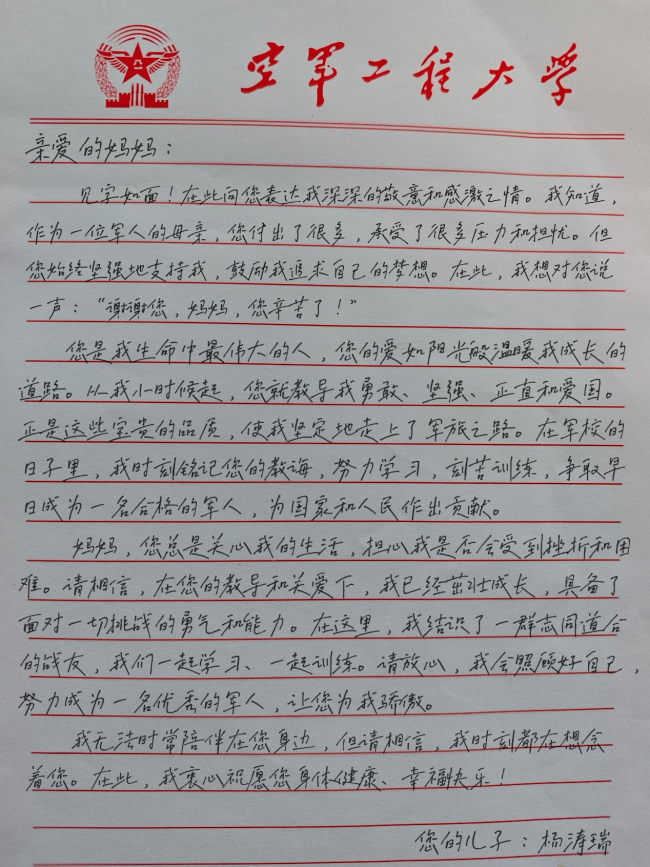 空军工程大学
亲爱的妈妈：
见字如面！在此向您表达我深深的敬意和感激之情。我知道，
作为一位军人的母亲，您付出了很多，承受了很多压力和担忧。但
您始终坚强地支持我，鼓励我追求自己的梦想。在此，我想对您说
一声：“谢谢您，妈妈，您辛苦了！”
您是我生命中最伟大的人，您的爱如阳光般温暖我成长的
道路。从我小时候起，您就教导我勇敢、坚强、正直和爱国。
正是这些宝贵的品质，使我坚定地走上了军旅之路。在军校的
日子里，我时刻铭记您的教诲，努力学习，刻苦训练，争取早
日成为一名合格的军人，为国家和人民作出贡献。
妈妈，您总是关心我的生活，担心我是否会受到挫折和困
难。请相信，在您的教导和关爱下，我已经茁壮成长，具备了
面对一切挑战的勇气和能力。在这里，我结识了一群志同道合
的战友，我们一起学习、一起训练。请放心，我会照顾好自己，
努力成为一名优秀的军人，让您为我骄傲。
我无法时常陪伴在您身边，但请相信，我时刻都在想念
着您。在此，我衷心祝愿您身体健康、幸福快乐！
您的儿子：杨涛瑞